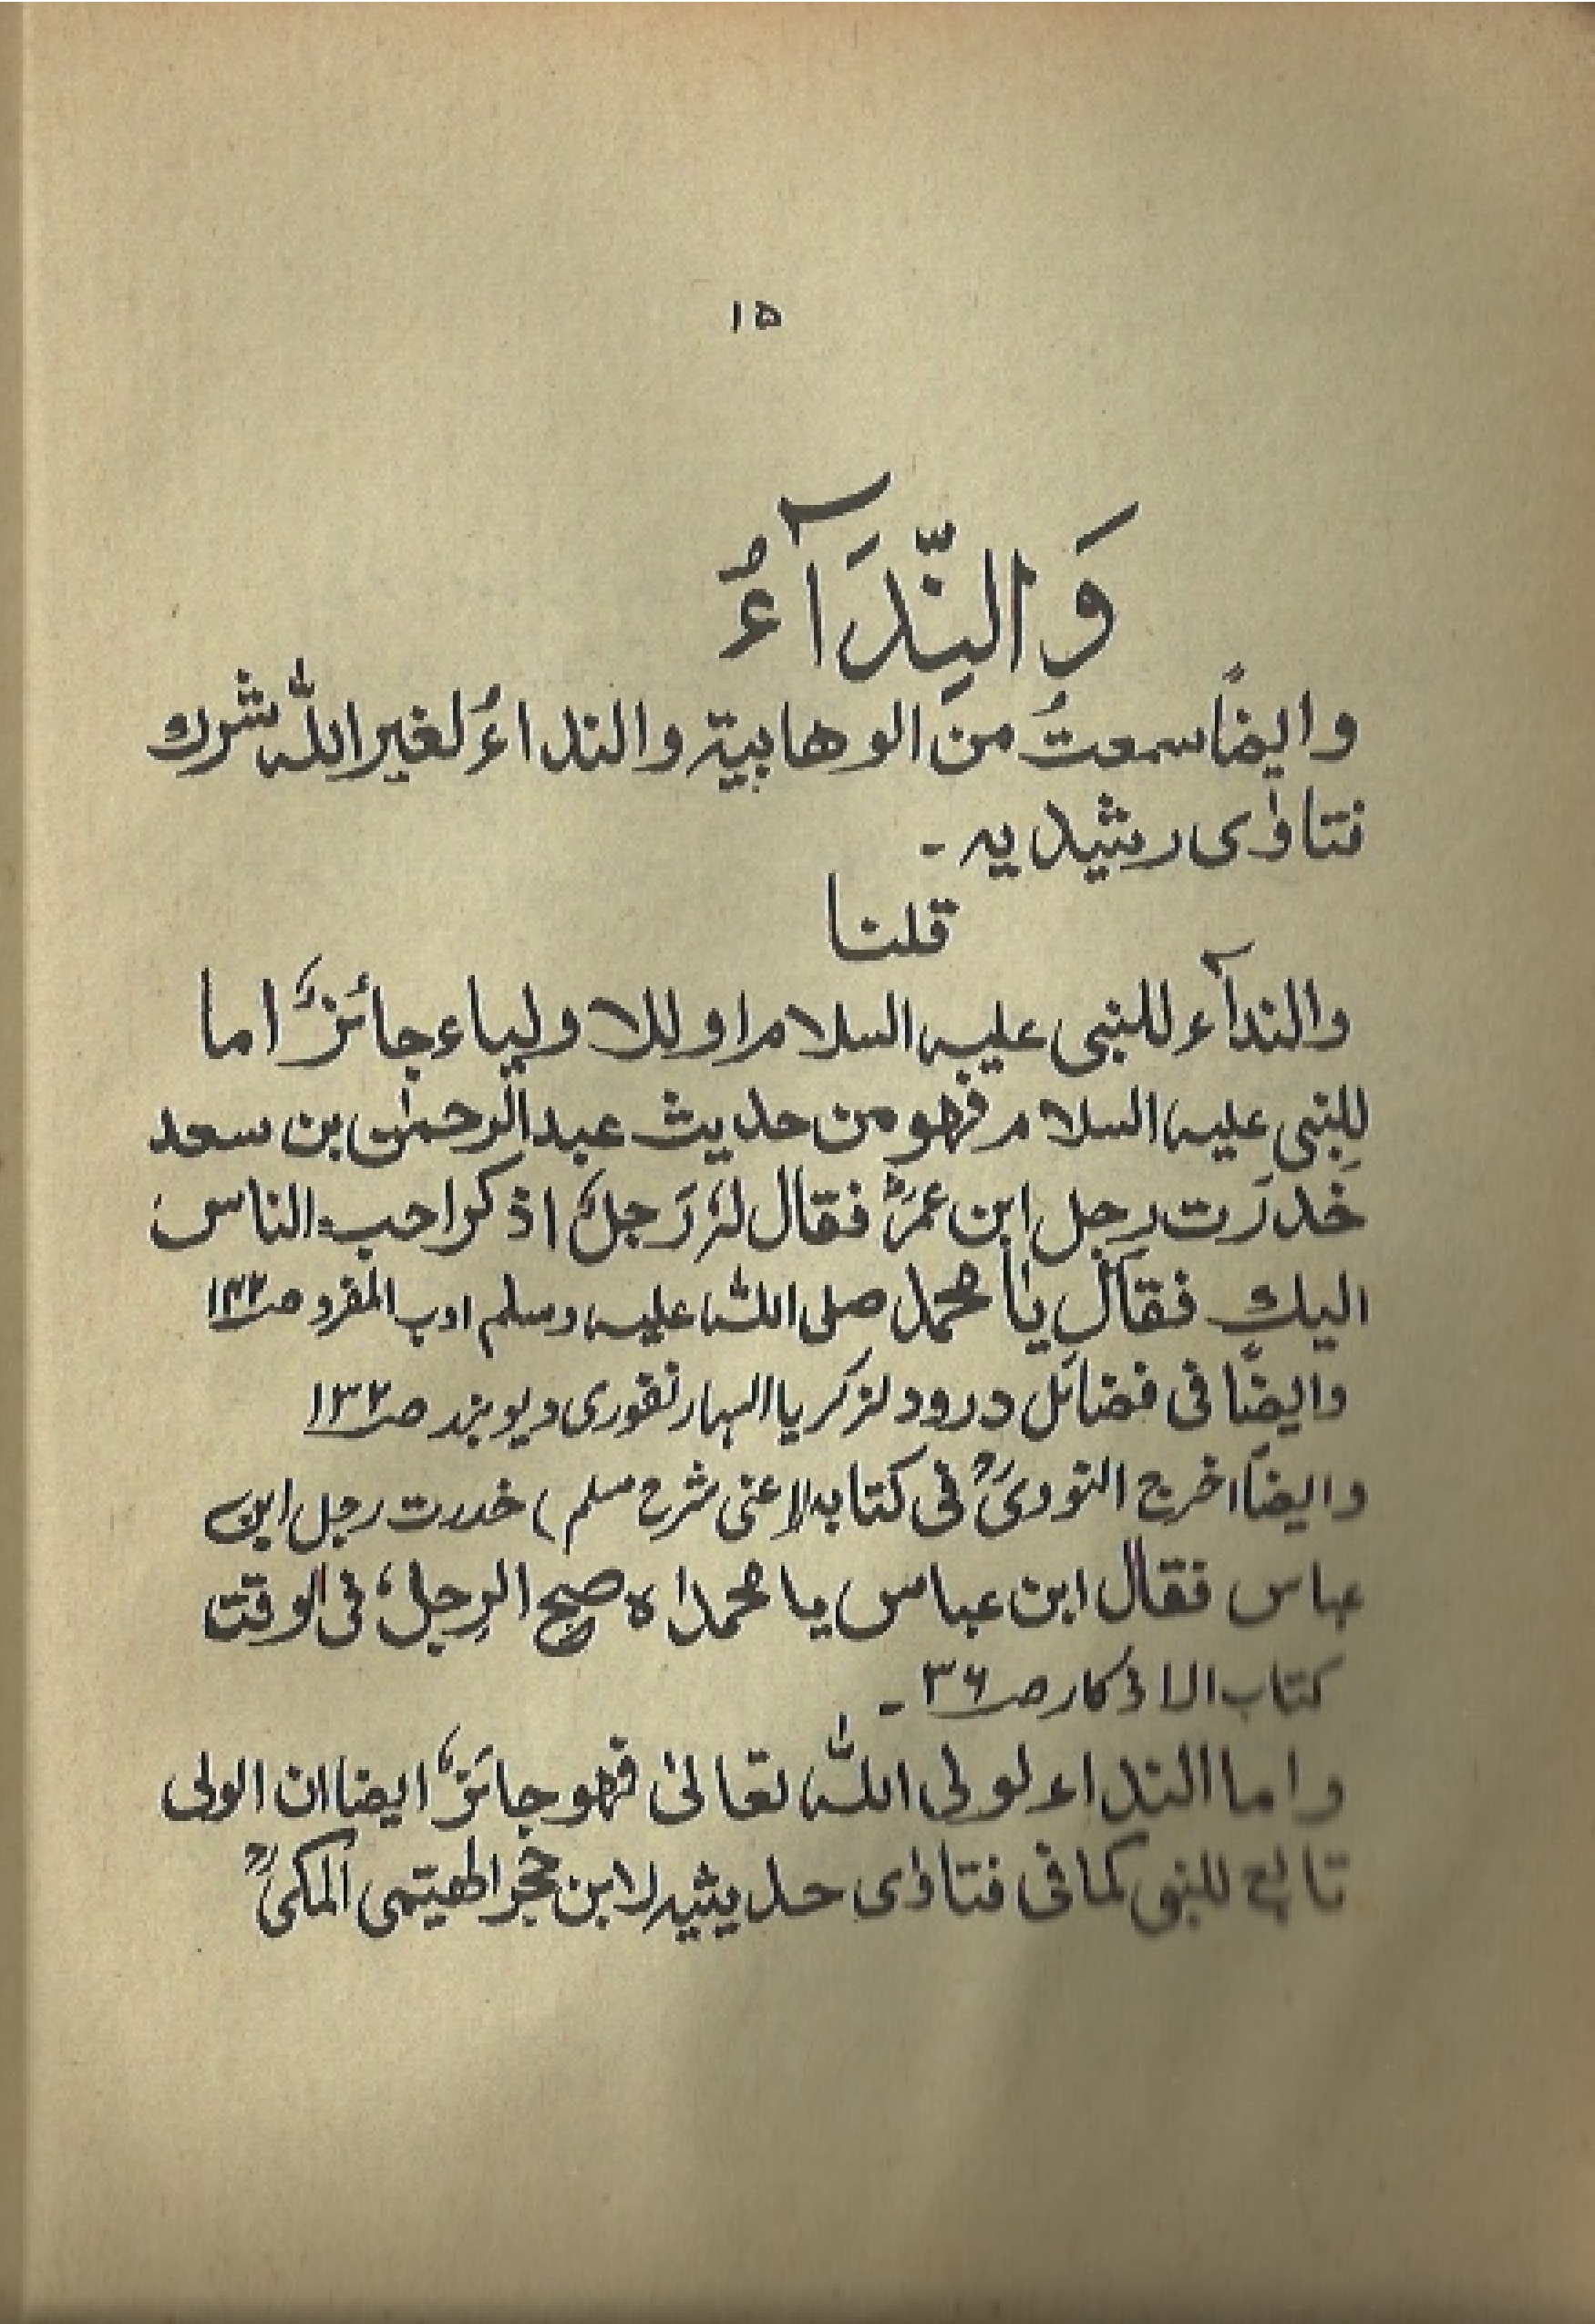 ۱۵
وَالنِّدَآءُ
وایضًا سمعتُ من الوھابیۃ والنداءُ لغیر اللہ شرك
فتاوٰی رشیدیہ ۔
قلنا
والندآء للنبی علیہ السلام او للاولیاء جائزٌ اما
للنبی علیہ السلام فھو من حدیث عبدالرحمٰن بن سعد
خَدِرَت رجل ابن عمرؓ فقال لہٗ رَجلٌ اذکر احب الناس
الیك فقال یا محمد صلی اللہ علیہ وسلم ادب المفرد صـ۱۴۲
وایضًا فی فضائل درود لزکریا السہارنفوری دیوبند صـ۱۳۲
وایضًا اخرج النوویؒ فی کتابہ لاعنی شرح مسلم) خدرت رجل ابن
عباس فقال ابن عباس یا محمداہ صح الرجلُ فی الوقت
کتاب الاذکار صـ۳۶ ۔
واما النداء لولی اللہ تعالیٰ فھو جائزٌ ایضا ان الولی
تابع للنبی کما فی فتاوٰی حدیثیہ لابن حجر الھیتمی المکیؒ